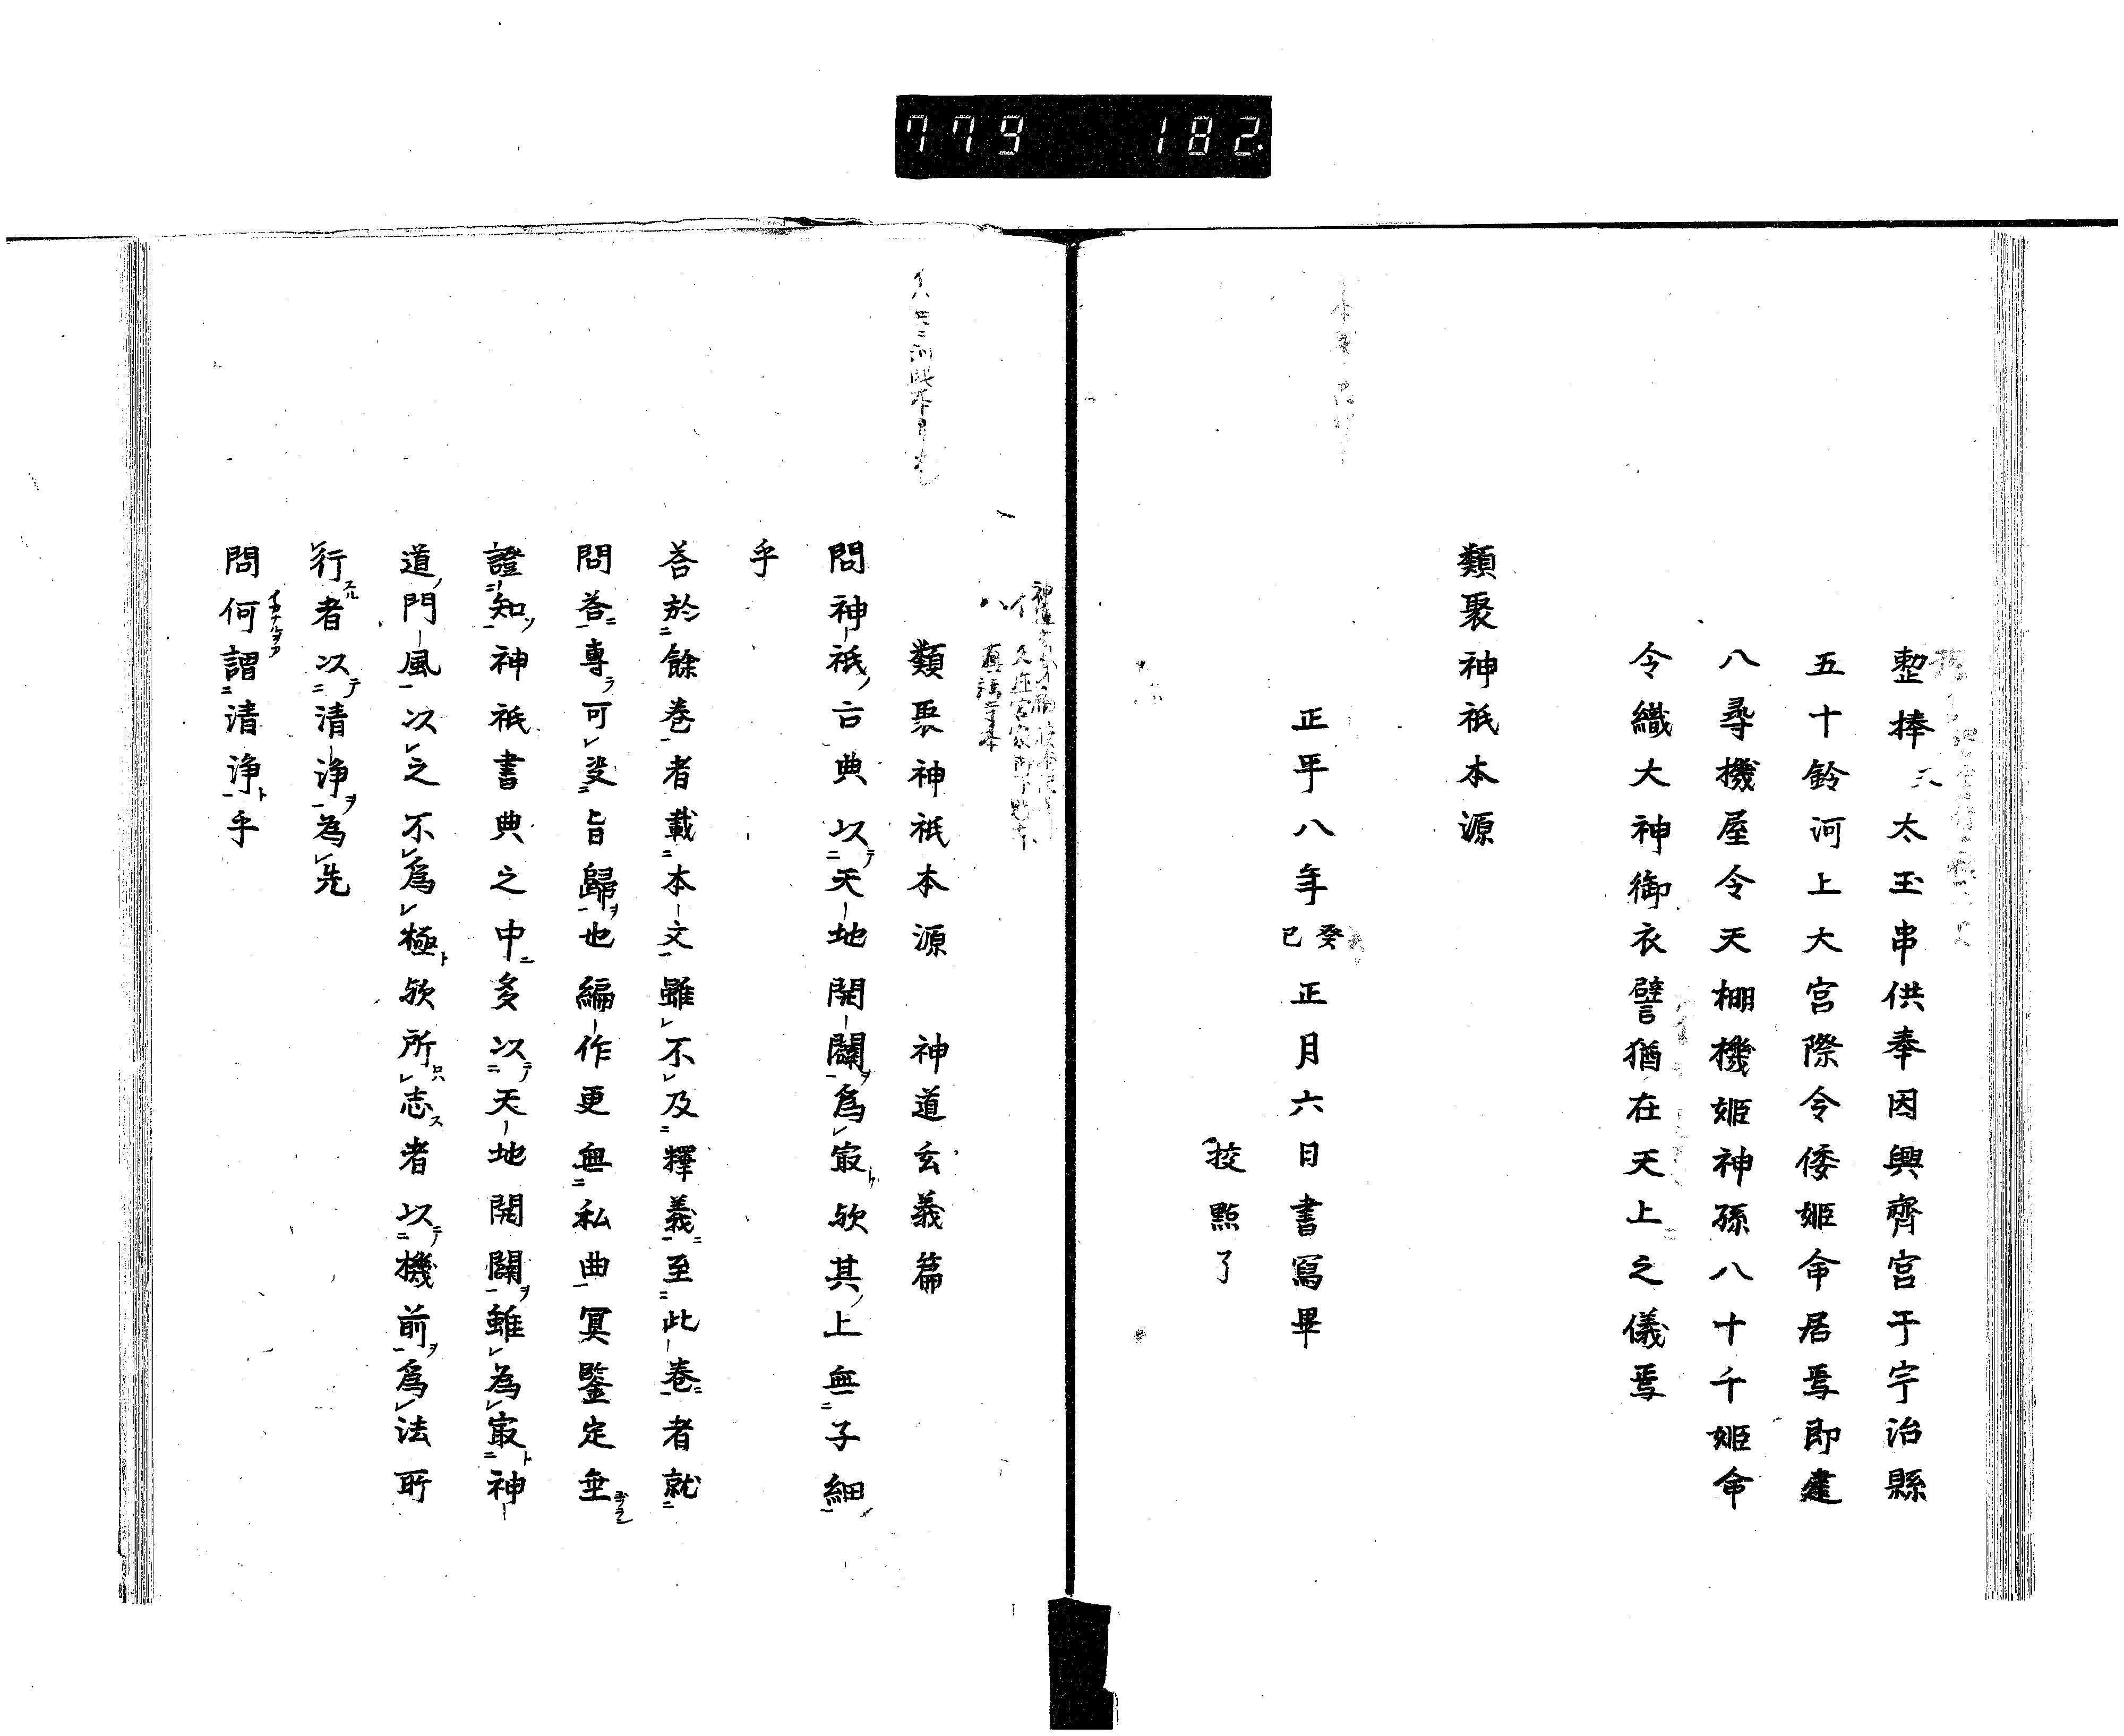 779 182.
整捧太玉串供奉因興齊宮于宇治縣
五十鈴河上大宮際令倭姬命居焉即建
八尋機屋令天棚機姬神孫八十千姬命
令織大神御衣譬猶在天上之儀焉
類聚神祇本源
正平八年癸巳正月六日書寫畢
挍點了
類聚神祇本源 神道玄義篇
問神祇古典以天地開闢爲冣欤其上無子細
乎
荅於餘卷者載本文雖不及釋義至此卷者就
問荅專可受旨歸也編作更無私曲冥鑒定垂
證知神祇書典之中多以天地開闢雖為冣神
道門風以之不爲極欤所志者以機前爲法所
行者以清浄為先
問何謂清浄乎